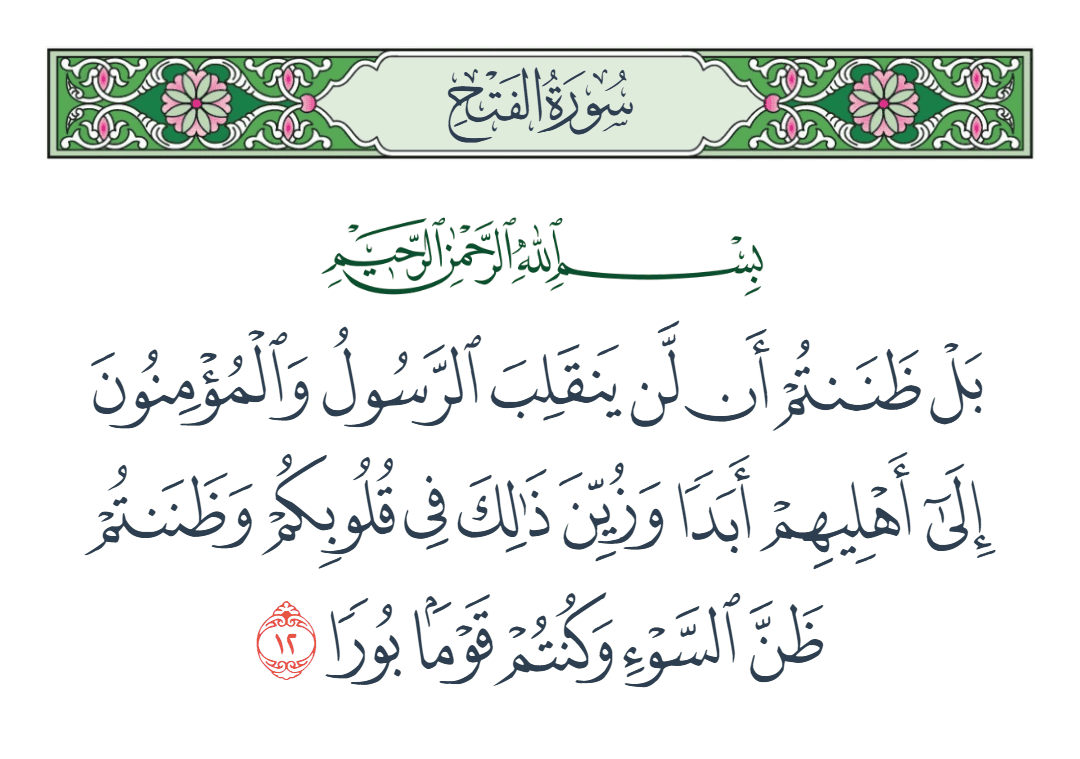 سُورَةُ الفَتْحِ
بِسْمِ ٱللَّهِ ٱلرَّحْمَٰنِ ٱلرَّحِيمِ
بَلْ ظَنَنتُمْ أَن لَّن يَنقَلِبَ ٱلرَّسُولُ وَٱلْمُؤْمِنُونَ
إِلَىٰٓ أَهْلِيهِمْ أَبَدًا وَزُيِّنَ ذَٰلِكَ فِى قُلُوبِكُمْ وَظَنَنتُمْ
ظَنَّ ٱلسَّوْءِ وَكُنتُمْ قَوْمًۢا بُورًا ١٢